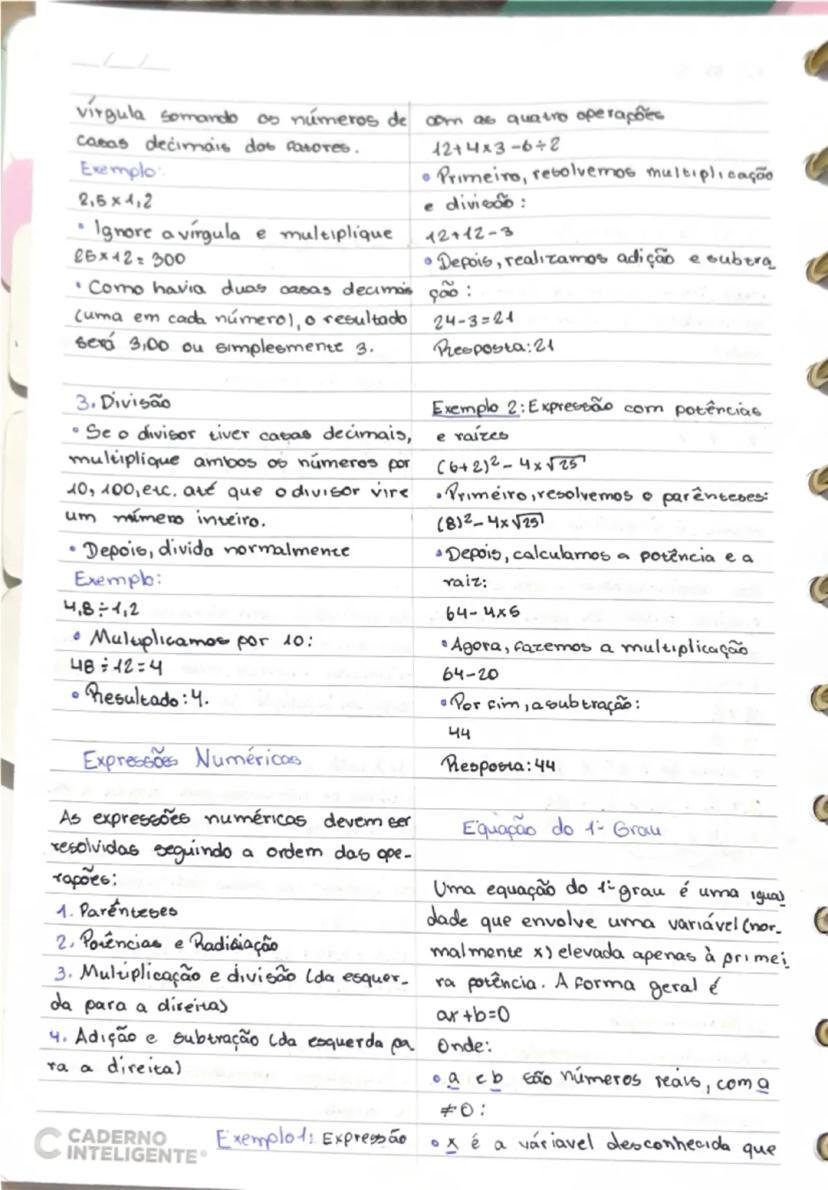 vírgula somando os números de
casas decimais dos fatores.
Exemplo:
2,5 x 1,2
• Ignore a vírgula e multiplique
25 x 12 = 300
• Como havia duas casas decimais
(uma em cada número), o resultado
será 3,00 ou simplesmente 3.
3. Divisão
• Se o divisor tiver casas decimais,
multiplique ambos os números por
10, 100, etc. até que o divisor vire
um número inteiro.
• Depois, divida normalmente
Exemplo:
4,8 ÷ 1,2
• Multiplicamos por 10:
48 ÷ 12 = 4
• Resultado: 4.
Expressões Numéricas
As expressões numéricas devem ser
resolvidas seguindo a ordem das ope-
rações:
1. Parênteses
2. Potências e Radiciação
3. Multiplicação e divisão (da esquer-
da para a direita)
4. Adição e subtração (da esquerda pa
ra a direita)
Exemplo 1: Expressão
com as quatro operações
12 + 4 x 3 - 6 ÷ 2
• Primeiro, resolvemos multiplicação
e divisão:
12 + 12 - 3
• Depois, realizamos adição e subtra
ção:
24 - 3 = 21
Resposta: 21
Exemplo 2: Expressão com potências
e raízes
(6+2)² - 4 x √25
• Primeiro, resolvemos o parênteses:
(8)² - 4 x √25
• Depois, calculamos a potência e a
raiz:
64 - 4 x 5
• Agora, fazemos a multiplicação
64 - 20
• Por fim, a subtração:
44
Resposta: 44
Equação do 1º Grau
Uma equação do 1º grau é uma igual
dade que envolve uma variável (nor-
malmente x) elevada apenas à primei
ra potência. A forma geral é
ax + b = 0
Onde:
• a e b são números reais, com a
≠ 0:
• x é a váriavel desconhecida que
CADERNO
INTELIGENTE®